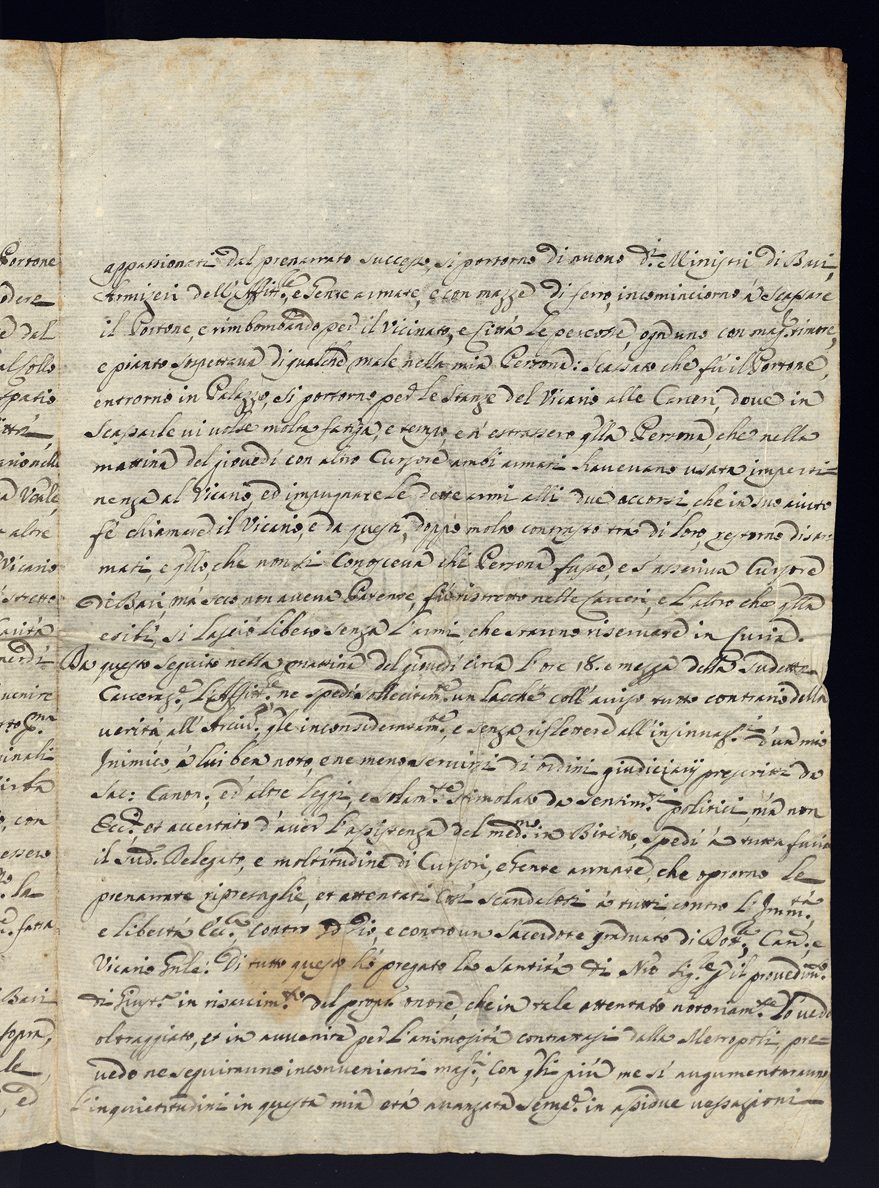 appassionati dal prenarrato successo, si portorno di nuovo d.i Ministri di Bari,
Armizeri dell'Affitt.le, e Gente armate, e con mazze di ferro, incominciorno à Scassare
il Portone, e rimbombando per il Vicinato, e Città le percosse, ogn'uno con mag.r timore,
e pianto sospettava di qualche male nella mia Persona: Scassato che fù il Portone,
entrorno in Palazzo, si portorno per le Stanze del Vicario alle Carceri, dove in
Scassarle vi volse molta fatiga, e tempo, e n'estrassero q.lla Persona, che nella
mattina del giovedì con altro Cursore ambi armati havevano usata imperti-
nenza al Vicario, ed impugnate le dette armi alli due accorsi, che in suo aiuto
fè chiamare il Vicario, e da questi, doppo molto contrasto trà di loro, restorno disar-
mati, e q.llo, che non si conosceva che Persona fusse, e s'asseriva Cursore
di Bari, mà seco non aveva Patente, fù ristretto nelle Carceri, e l'altro che q.lla
esibì, si lasciò libero senza l'armi, che stanno riservate in Curia.
Da questo seguito nella mattina del giovedì circa l'ore 18. e mezza della sudetta
Carceraz.e, l'Affitt.le ne spedì sollecitam.te un lacchè coll'aviso tutto contrario della
verità, all'Arciv.o, q.le inconsideratam.te, e senza riflettere all'insinuaz.i d'un mio
Inimico, à lui ben noto, e ne meno servirsi di ordini giudiciarij prescritti da
Sac: Canoni, ed'altre leggi, e solam.te stimolato da sentim.ti politici, mà non
Ecc.ci, et accertato d'aver l'assistenza del med.mo in Bitetto, spedì à tutta furia
il sud.o Delegato, e moltitudine di Cursori, e Gente armate, che oprorno le
prenarrate ripresaglie, et attentati così scandalosi à tutti, contro l'Imm.tà,
e libertà Ecc.ca, contro Dio, e contro un Sacerdote graduato di Dott.e, Can.o, e
Vicario Gn̄le: Di tutto questo hò pregato la Santità di N̄ro Sig.re p il provedim.to
di Giust.a in risarcim.to del prop.o onore, che in tale attentato notoriam.te lo vedo
oltraggiato, et in avvenire per l'animosità contrattasi dalla Metropoli, pre-
vedo ne seguiranno inconvenienti mag.ri, con q.li più me si augumentaranno
l'inquietitudini in questa mia età avanzata semp.e in assidue vessazioni